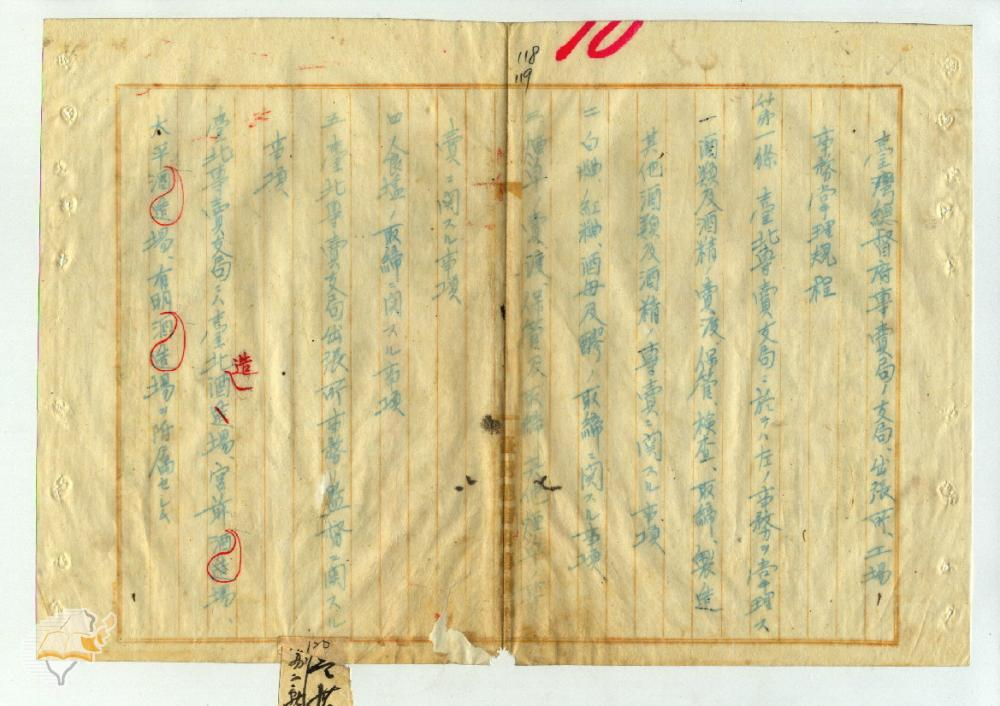 10
118
119
臺灣總督府專賣局ノ支局、出張所、工場
事務掌理規程
第一條 臺北專賣支局ニ於テハ左ノ事務ヲ掌理ス
一 酒類及酒精ノ賣渡、保管、檢查、取締、製造
其他酒類及酒精ノ專賣ニ関スル事項
二 白麹、紅麹、酒母及醪ノ取締ニ関スル事項
三 煙草ノ賣渡、保管及取締其他煙草專
賣ニ関スル事項
四 食塩ノ取締ニ関スル事項
五 臺北專賣支局出張所事務監督ニ関スル
事項
臺北專賣支局ニハ臺北酒造場、宮前酒造場、
造
太平酒造場、有明酒造場ヲ附屬セシム
120
第二